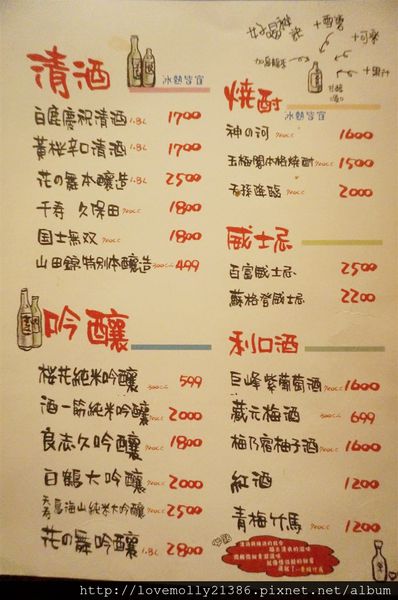 清酒
冰熱皆宜
白鹿慶祝清酒 1.8L 1700
黃桜辛口清酒 1.8L 1700
花の舞本釀造 1.8L 2500
千寿 久保田 720cc 1800
国士無双 720cc 1800
山田錦特別本釀造 300cc 499
吟釀
桜花純米吟釀 300cc 599
酒一筋純米吟釀 720cc 2000
良志久吟釀 720cc 1800
白鶴大吟釀 720cc 2000
鳥海山純米大吟釀 720cc 2500
花の舞吟釀 1.8L 2800
+雪碧
+可樂
+果汁
燒酎
冰熱皆宜
神の河 720cc 1600
玉極閣本格燒酎 720cc 1500
天孫降臨 720cc 2000
威士忌
百富威士忌 2500
蘇格登威士忌 2200
利口酒
巨峰紫葡萄酒 720cc 1600
藏元梅酒 300cc 699
梅乃宿柚子酒 720cc 1600
紅酒 1200
青梅竹馬 1200
http://lovemolly21386.pixnet.net/album